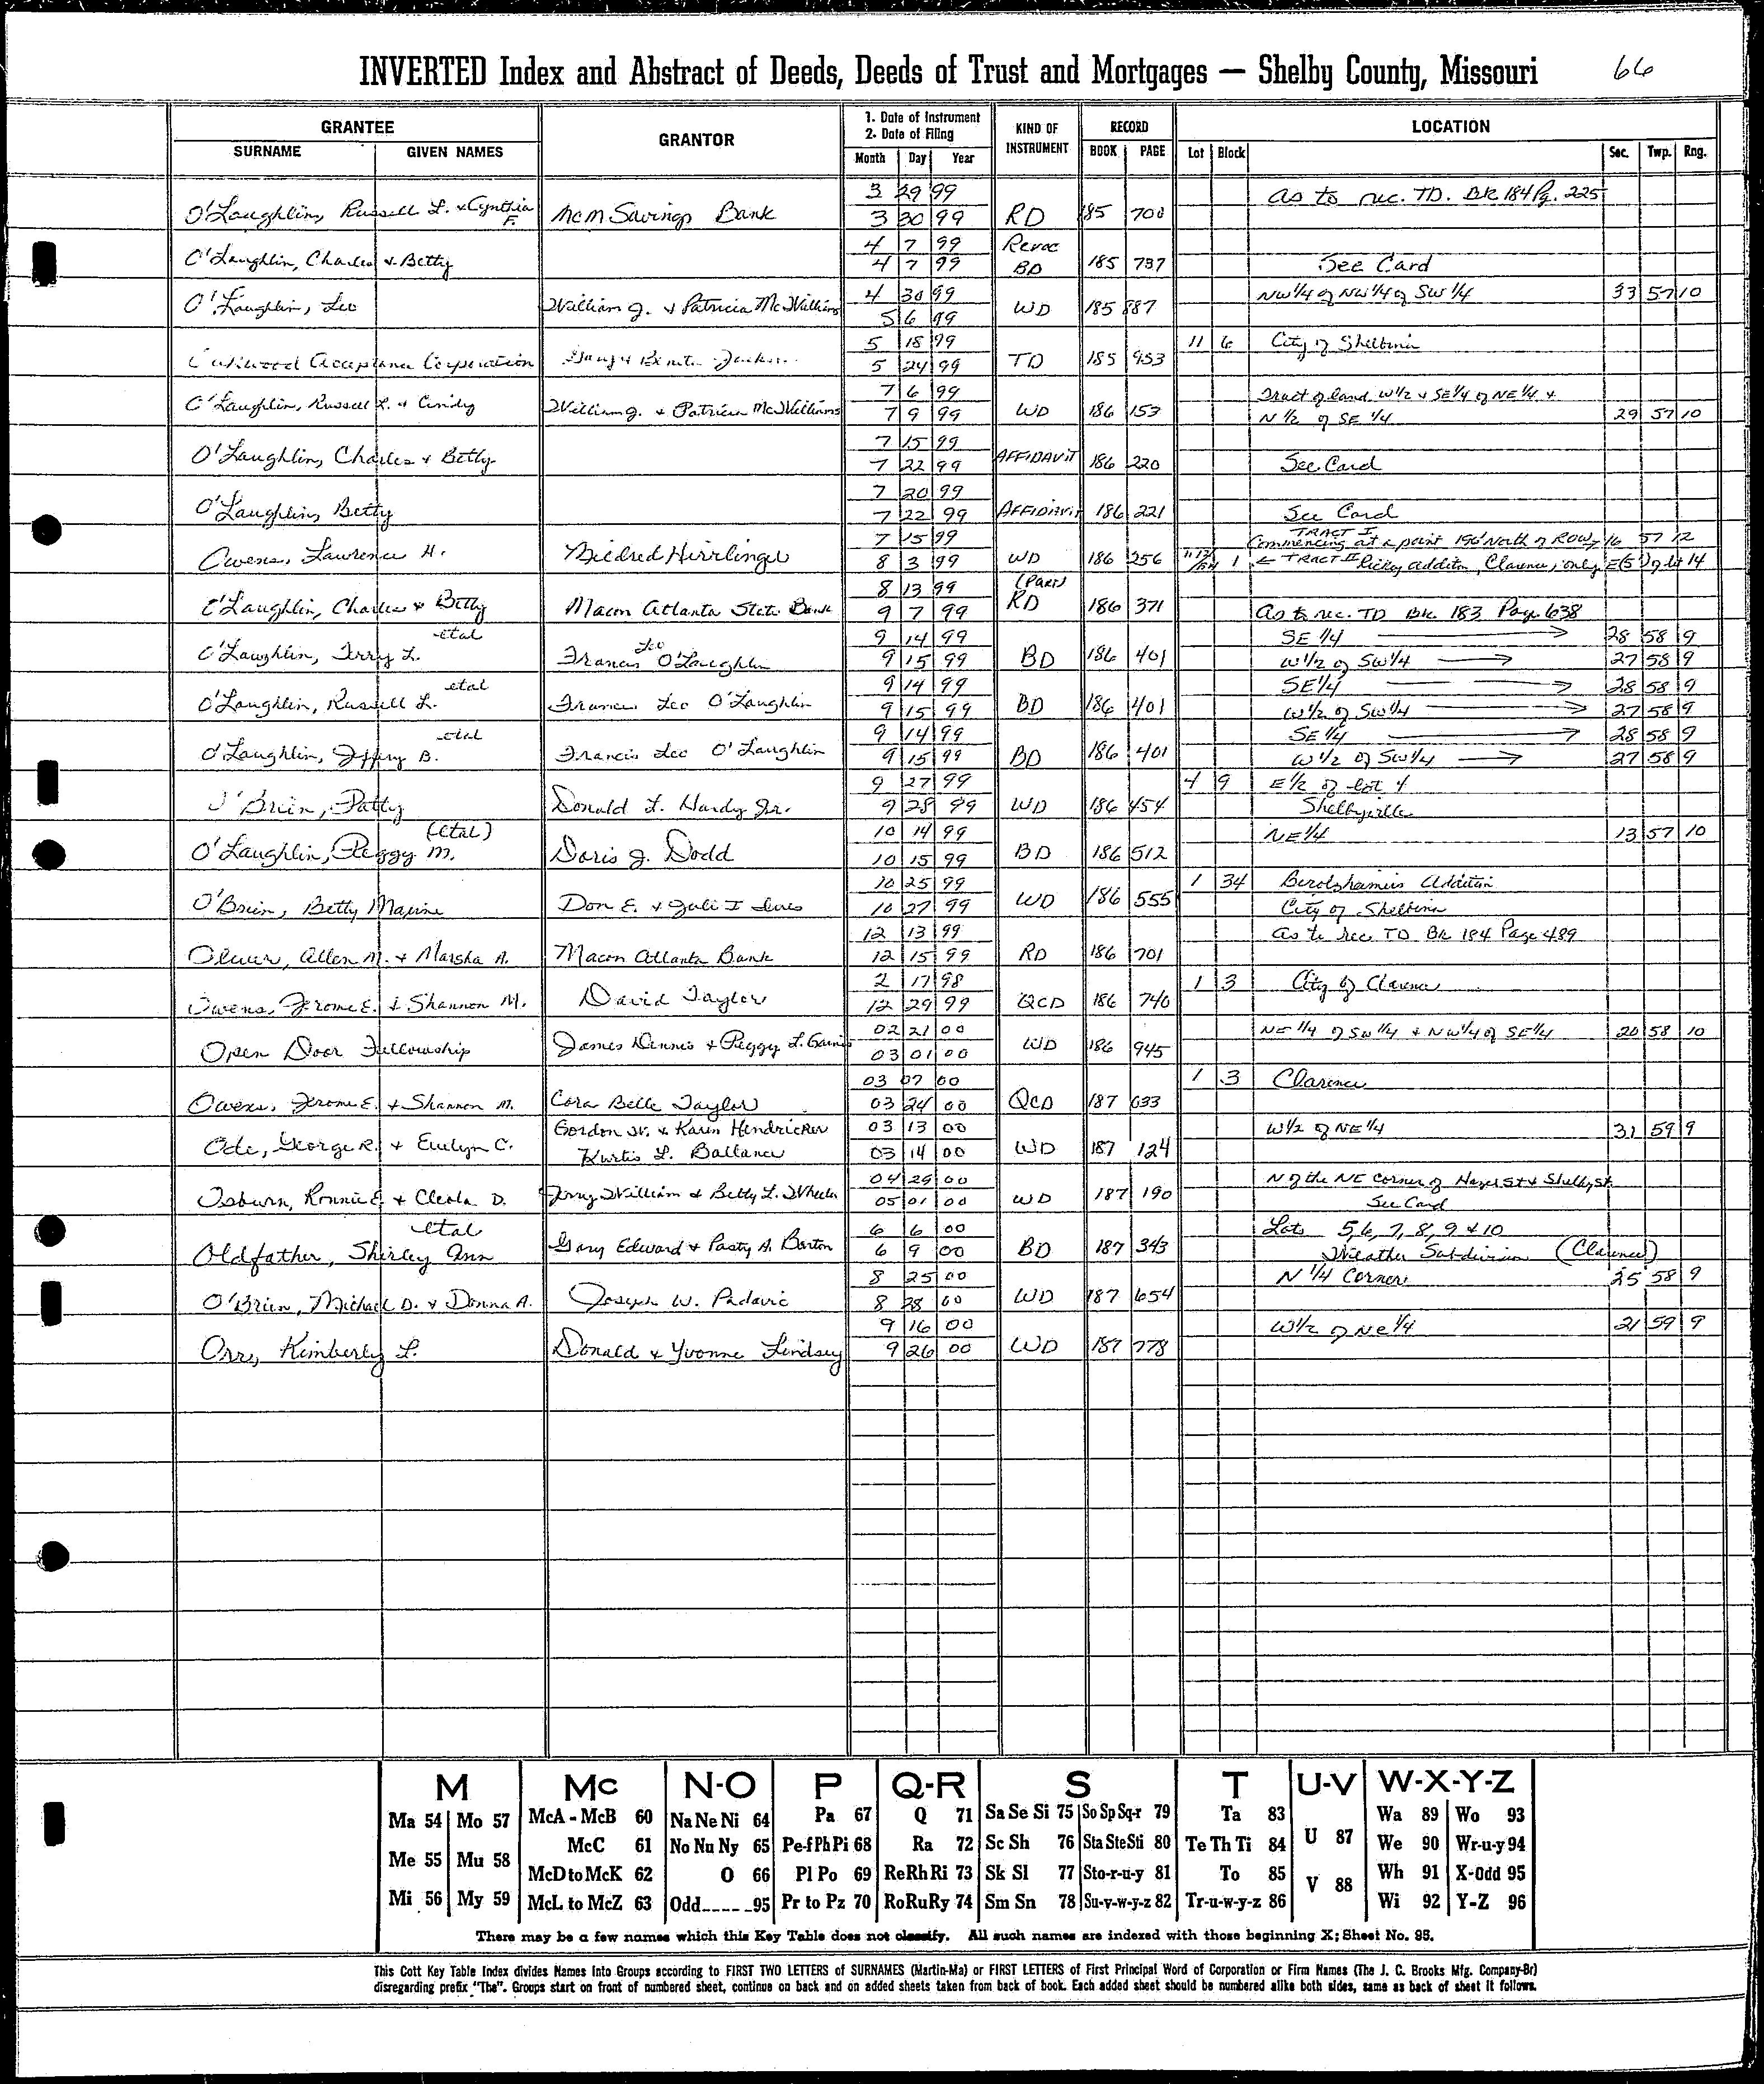 INVERTED Index and Abstract of Deeds, Deeds of Trust and Mortgages — Shelby County, Missouri 66
GRANTEE GRANTOR 1. Date of Instrument 2. Date of Filing KIND OF INSTRUMENT RECORD LOCATION
SURNAME GIVEN NAMES Month Day Year BOOK PAGE Lot Block Sec. Twp. Rng.
3 29 99 As to rec. TD. BK 184 Pg. 225
O'Laughlin, Russell L. & Cynthia F. MCM Savings Bank 3 30 99 RD 185 700
4 7 99 Revoc
O'Laughlin, Charles & Betty 4 7 99 BD 185 737 See Card
4 30 99 NW 1/4 of NW 1/4 of SW 1/4 33 57 10
O'Laughlin, Leo William J. & Patricia McWilliams 5 6 99 WD 185 887
5 18 99 11 6 City of Shelbina
Acceptance Corporation 5 24 99 TD 185 953
7 6 99 Tract of land W 1/2 & SE 1/4 of NE 1/4 &
O'Laughlin, Russell L. & Cindy William J. & Patricia McWilliams 7 9 99 WD 186 153 N 1/2 of SE 1/4 29 57 10
7 15 99
O'Laughlin, Charles & Betty 7 22 99 AFFIDAVIT 186 220 See Card
7 20 99
O'Laughlin, Betty 7 22 99 AFFIDAVIT 186 221 See Card
7 15 99 TRACT I Commencing at a point 190' North of ROW 16 57 12
Owens, Lawrence H. Mildred Hirrlinger 8 3 99 WD 186 256 1 ← TRACT II addition, Clarence, only E(5') of lot 14
8 13 99 (Part)
O'Laughlin, Charles & Betty Macon Atlanta State Bank 9 7 99 RD 186 371 As to rec. TD BK. 183 Page 638
etal 9 14 99 SE 1/4 → 28 58 9
O'Laughlin, Terry L. Francis Leo O'Laughlin 9 15 99 BD 186 401 W 1/2 of SW 1/4 → 27 58 9
etal 9 14 99 SE 1/4 → 28 58 9
O'Laughlin, Russell L. Francis Leo O'Laughlin 9 15 99 BD 186 401 W 1/2 of SW 1/4 → 27 58 9
etal 9 14 99 SE 1/4 → 28 58 9
O'Laughlin, Jeffery B. Francis Leo O'Laughlin 9 15 99 BD 186 401 W 1/2 of SW 1/4 → 27 58 9
9 27 99 4 9 E 1/2 of lot 4
O'Brien, Patty Donald L. Hardy Jr. 9 28 99 WD 186 454 Shelbyville
(etal) 10 14 99 NE 1/4 13 57 10
O'Laughlin, Peggy M. Doris J. Dodd 10 15 99 BD 186 512
10 25 99 1 34 Addition
O'Brien, Betty Maxine Don E. & 10 27 99 WD 186 555 City of Shelbina
12 13 99 As to rec TD BK 184 Page 489
Oliver, Allen M. & Marsha A. Macon Atlanta Bank 12 15 99 RD 186 701
2 17 98 1 3 City of Clarence
Owens, Jerome E. & Shannon M. David Taylor 12 29 99 QCD 186 740
02 21 00 NE 1/4 of SW 1/4 & NW 1/4 of SE 1/4 20 58 10
Open Door Fellowship James Dennis & Peggy L. 03 01 00 WD 186 945
03 07 00 1 3 Clarence
Owens, Jerome E. & Shannon M. Cora Belle Taylor 03 24 00 QCD 187 033
Gordon W. & Karen Hendricker 03 13 00 W 1/2 of NE 1/4 31 59 9
Ode, George R. & Evelyn C. Kurtis L. Ballance 03 14 00 WD 187 124
04 29 00 N of the NE corner of Hayes St & Shelby St
Osburn, Ronnie E. & Cleola D. Jerry William & Betty L. Wheeler 05 01 00 WD 187 190 See Card
etal 6 6 00 Lots 5, 6, 7, 8, 9 & 10
Oldfather, Shirley Ann Gary Edward & Pasty A. Barton 6 9 00 BD 187 343 Subdivision (Clarence)
8 25 00 N 1/4 Corner 25 58 9
O'Brien, Michael D. & Donna A. Joseph W. Padavic 8 28 00 WD 187 654
9 16 00 W 1/2 of NE 1/4 21 59 9
Orr, Kimberly L. Donald & Yvonne Lindsey 9 26 00 WD 187 778
M Mc N-O P Q-R S T U-V W-X-Y-Z
Ma 54 Mo 57 McA - McB 60 Na Ne Ni 64 Pa 67 Q 71 Sa Se Si 75 So Sp Sq-r 79 Ta 83 U 87 Wa 89 Wo 93
McC 61 No Nu Ny 65 Pe-f Ph Pi 68 Ra 72 Sc Sh 76 Sta Ste Sti 80 Te Th Ti 84 We 90 Wr-u-y 94
Me 55 Mu 58 McD to McK 62 O 66 Pl Po 69 Re Rh Ri 73 Sk Sl 77 Sto-r-u-y 81 To 85 V 88 Wh 91 X-Odd 95
Mi 56 My 59 McL to McZ 63 Odd 95 Pr to Pz 70 Ro Ru Ry 74 Sm Sn 78 Su-v-w-y-z 82 Tr-u-w-y-z 86 Wi 92 Y-Z 96
There may be a few names which this Key Table does not classify. All such names are indexed with those beginning X; Sheet No. 95.
This Cott Key Table Index divides Names into Groups according to FIRST TWO LETTERS of SURNAMES (Martin-Ma) or FIRST LETTERS of First Principal Word of Corporation or Firm Names (The J. C. Brooks Mfg. Company-Br)
disregarding prefix "The". Groups start on front of numbered sheet, continue on back and on added sheets taken from back of book. Each added sheet should be numbered alike both sides, same as back of sheet it follows.